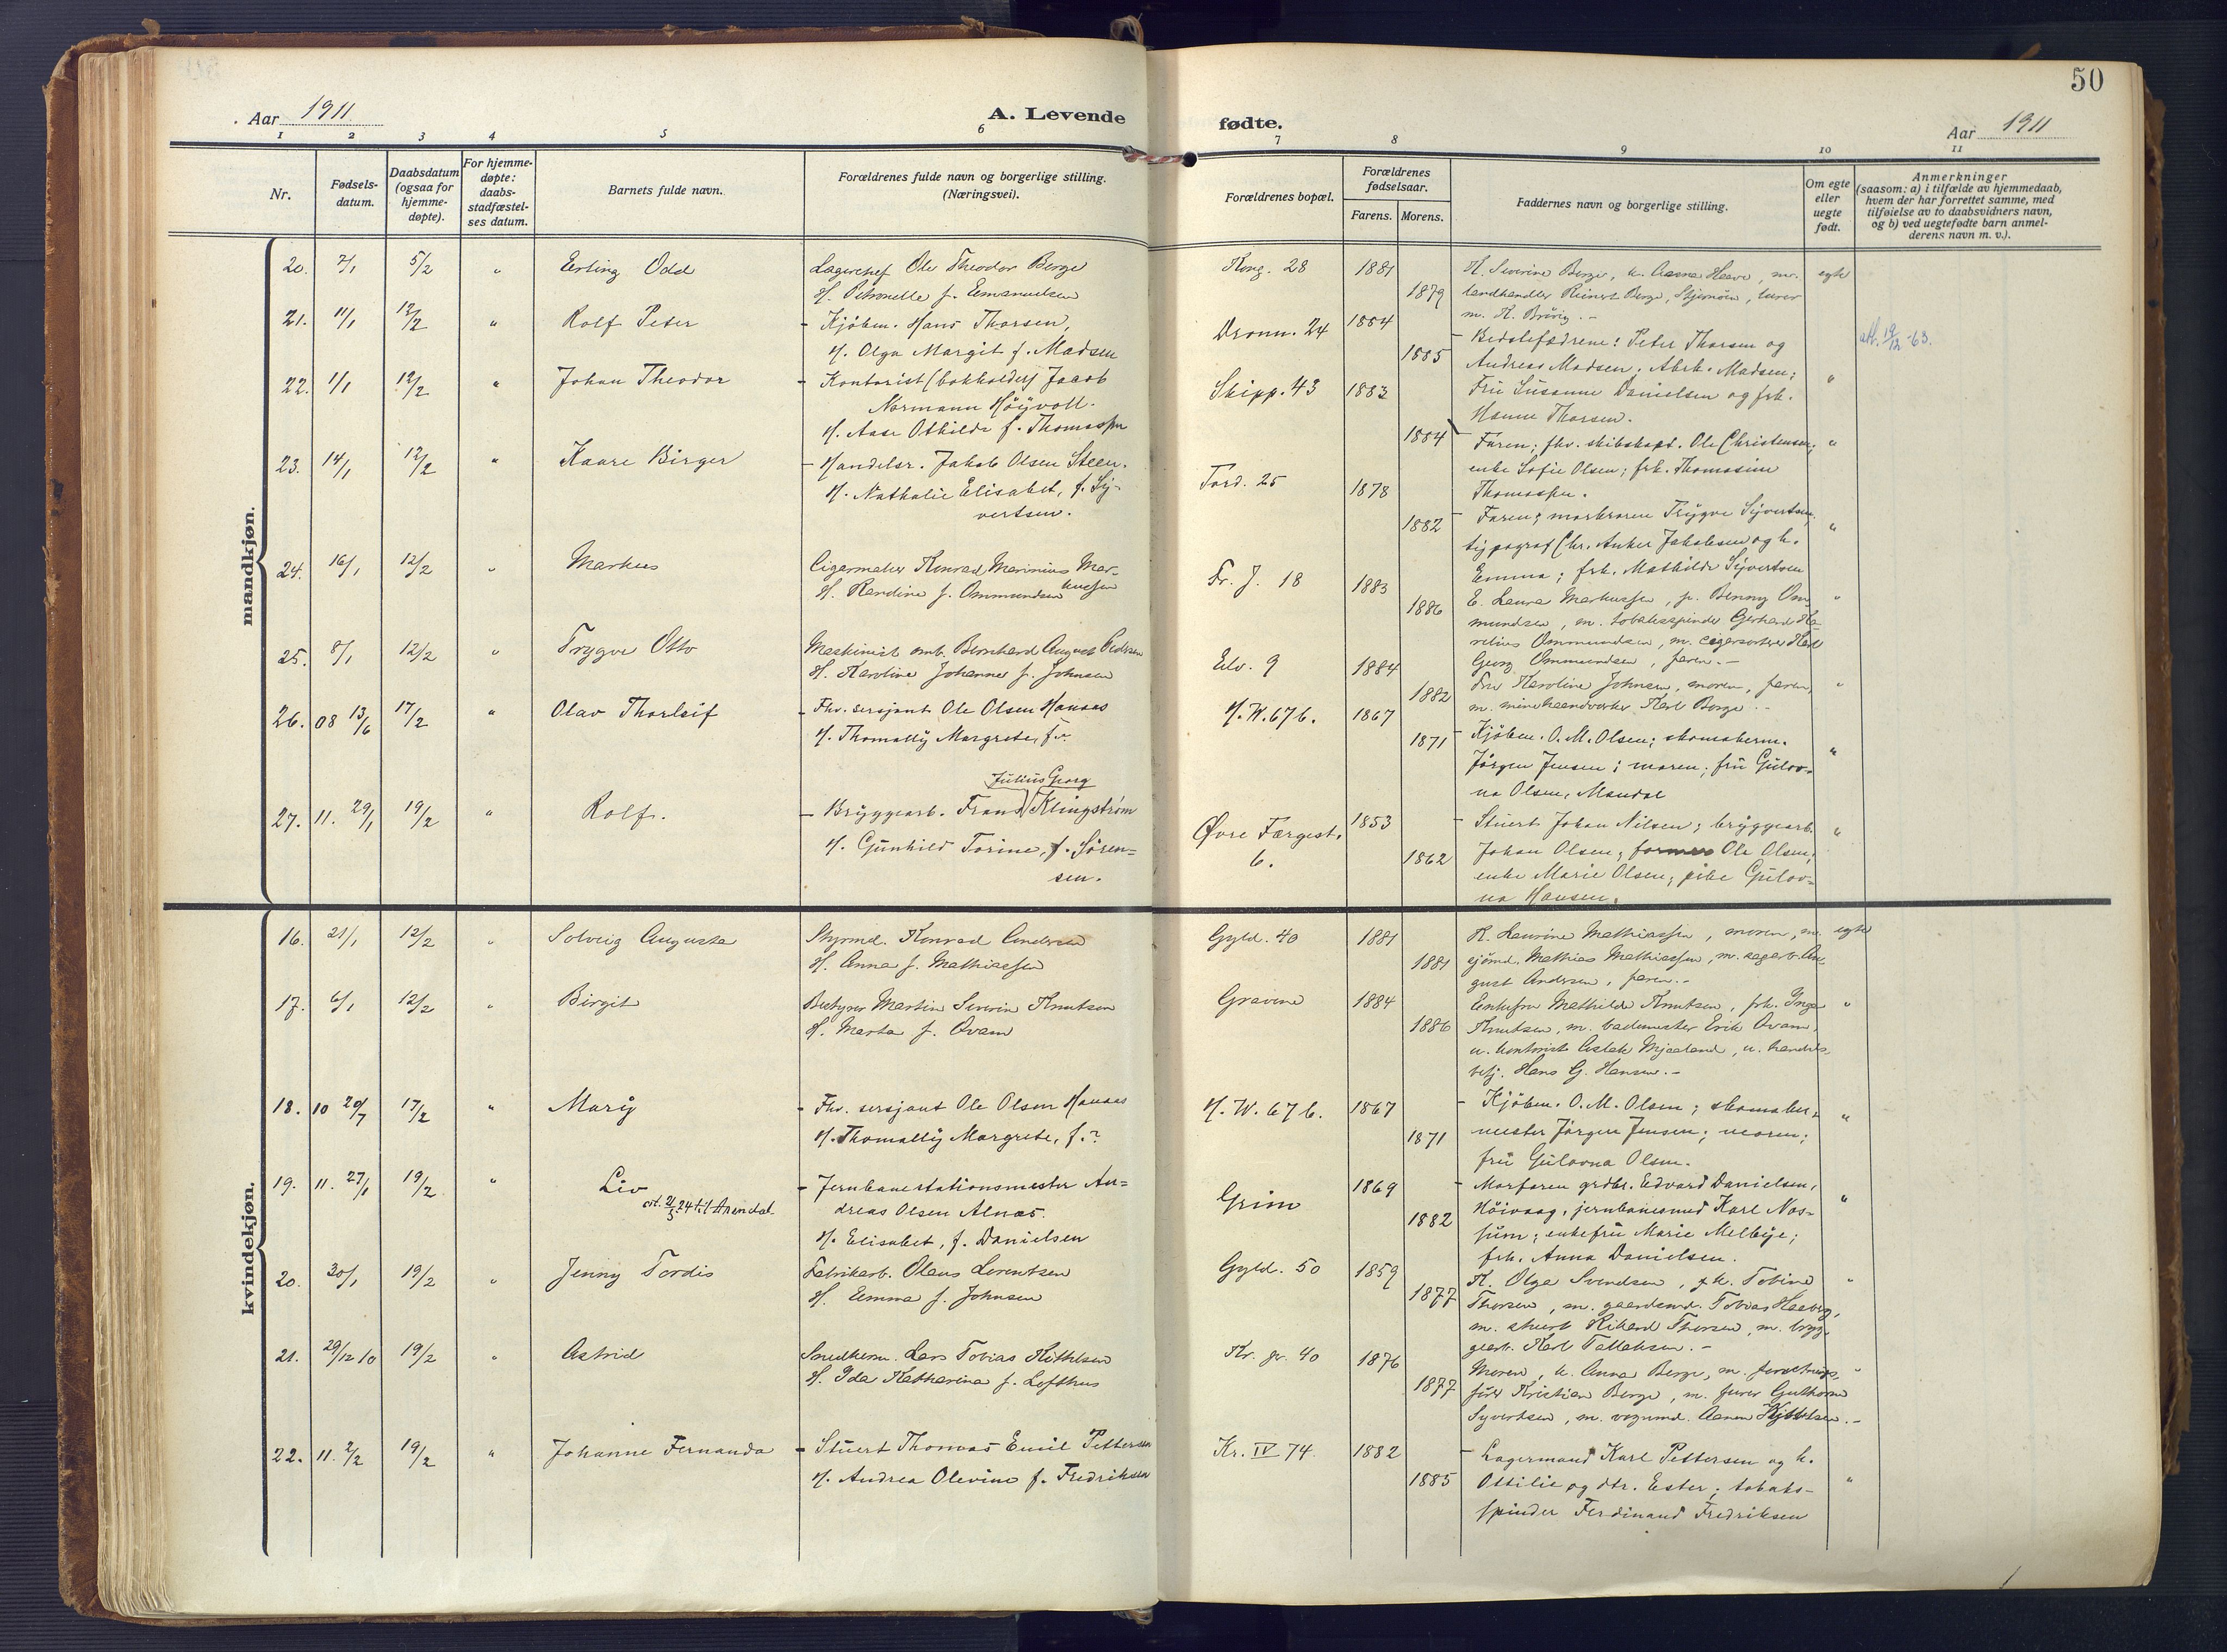 50
Aar 1911
A. Levende
fødte.
Aar 1911
1 2 3 4 5 6 7 8 9 10 11
Nr.
Fødsels-
datum.
Daabsdatum
(ogsaa for
hjemme-
døpte).
For hjemme-
døpte:
daabs-
stadfæstel-
ses datum.
Barnets fulde navn.
Forældrenes fulde navn og borgerlige stilling.
(Næringsvei).
Forældrenes bopæl.
Forældrenes
fødselsaar.
Farens. Morens.
Faddernes navn og borgerlige stilling.
Om egte
eller
uegte
født.
Anmerkninger
(saasom: a) i tilfælde av hjemmedaab,
hvem der har forrettet samme, med
tilføielse av to daabsvidners navn,
og b) ved uegtefødte barn anmel-
derens navn m. v.).
mandkjøn.
20. 7/1 5/2 " Erling Odd
Lagerchef Ole Theodor Berge
H. Petronelle f. Emanuelsen
Kong. 28 1881 1879
K. Severine Berge, u. Aasne Haave, m.
landhandler Reinert Berge, Stjernøen, lærer
m. K. Brövig. -
egte
21. 11/1 12/2 " Rolf Peter
- Kjöbm. Hans Thorsen,
H. Olga Margit f. Madsen
Dronn. 24 1884 1885
- Bedstefædrene: Peter Thorsen og
Andreas Madsen. Abrh. Madsen;
Frü Susanne Danielsen og frk.
Hanne Thorsen.
"
att. 19/12-63.
22. 1/1 12/2 " Johan Theodor
- Kontorist (bokholder) Jacob
Normann Höÿvoll.
H. Aase Othilde f. Thomassen
Skipp. 43 1883 1884
- Faren; fhv. skibskapt. Ole Christensen;
enke Sofie Olsen; frk. Thomasine
Thomassen.
"
23. 14/1 12/2 " Kaare Birger
- Handelsr. Jakob Olsen Steen.
H. Nathalie Elisabet, f. Sÿ-
vertsen.
Tord. 25 1878 1882
- Faren; maskraren Trÿgve Sÿvertsen,
tÿpograf Chr. Anker Jakobsen og h.
Emma; frk. Mathilde Sÿvertsen
"
24. 16/1 12/2 " Markus
Cigarmaker Konrad Marinius Mar-
kussen
H. Randine f. Ommundsen
Fr. J. 18 1883 1886
E. Laura Markussen, p. Benny Om-
mundsen, m. tobaksspinder Gerhard Ka-
relius Ommundsen, m. cigarsorterer Karl
Georg Ommundsen, faren. -
"
25. 8/1 12/2 " Trygve Otto
Maskinist omb. Bernhard August Pedersen
H. Karoline Johanne f. Johnsen
Elv. 9 1884 1882
Fru Karoline Johnsen, moren, faren,
m. minehaandverker Karl Berge. -
"
26. 08 13/6 17/2 " Olav Thorleif
- Fhv. sersjant Ole Olsen Hanaas
H. Thomallÿ Margrete, f. ?
H. W. 67 b. 1867 1871
- Kjöbm. O. M. Olsen; skomakerm.
Jörgen Jensen; moren; frü Gülov-
na Olsen, Mandal
"
27. 11. 29/1 19/2 " Rolf.
Julius Georg
- Brÿggearb. Frans Klingström
H. Günhild Torine, f. Sören-
sen.
Øvre Færgest.
6.
1853 1862
- Stüert Johan Nilsen; brÿggearb.
Johan Olsen; Ole Olsen;
enke Marie Olsen; pike Gülov-
na Hansen.
"
kvindekjøn.
16. 21/1 12/2 " Solveig Augusta
Styrmd. Konrad Andersen
H. Anna f. Mathiassen
Gyld. 40 1881 1881
K. Laurine Mathiassen, moren, m.
sjömd. Mathias Mathiassen, m. sagarb. Au-
gust Andersen, faren. -
egte
17. 6/1 12/2 " Birgit
Bestyrer Martin Severin Knutsen
H. Marta f. Qvam
Gravene 1884 1886
Enkefru Mathilde Knutsen, frk. Inga
Knutsen, m. bademester Erik Qvam,
u. kontorist Aslak Mjaaland, u. handels-
betj. Hans G. Hansen. -
"
18. 10 20/7 17/2 " Marÿ
- Fhv. sersjant Ole Olsen Hanaas
H. Thomallÿ Margrete, f. ?
H. W. 67 b. 1867 1871
- Kjöbm. O. M. Olsen; skomaker-
mester Jörgen Jensen; moren;
frü Gülovna Olsen.
"
19. 11. 27/1 19/2 " Liv
att. 21/5.24 til Arendal.
- Jernbanestationsmester An-
dreas Olsen Alnæs.
H. Elisabet, f. Danielsen
Grim 1869 1882
- Morfaren grdbr. Edvard Danielsen,
Höivaag, jernbanemand Karl Nor-
jüm; enkefrü Marie Melbÿe;
frk. Anna Danielsen.
"
20. 30/1 19/2 " Jenny Tordis
Fabrikarb. Olaus Lorentsen
H. Emma f. Johnsen
Gyld. 50 1859 1877
K. Olga Svendsen, frk. Tobine
Thorsen, m. gaardmd. Tobias Haaberg,
m. stuert Rikard Thorsen, m. bryg-
gearb. Karl Tallaksen. -
"
21. 29/12 10 19/2 " Astrid
Snedkerm. Lars Tobias Kittelsen
H. Ida Katharina f. Lofthus
Kr. gr. 40 1876 1877
Moren, u. Anna Berge, m. forretnings-
förer Kristian Berge, m. furer Guthorm
Syvertsen, m. vognmd. Aanen Kittelsen. -
"
22. 11. 2/2 19/2 " Johanne Fernanda
- Stüert Thomas Emil Pettersen
H. Andrea Olevine f. Fredriksen
Kr. IV 74. 1882 1885
- Lagermand Karl Pettersen og h.
Ottilie og dtr. Ester; tobaks-
spinder Ferdinand Fredriksen
"